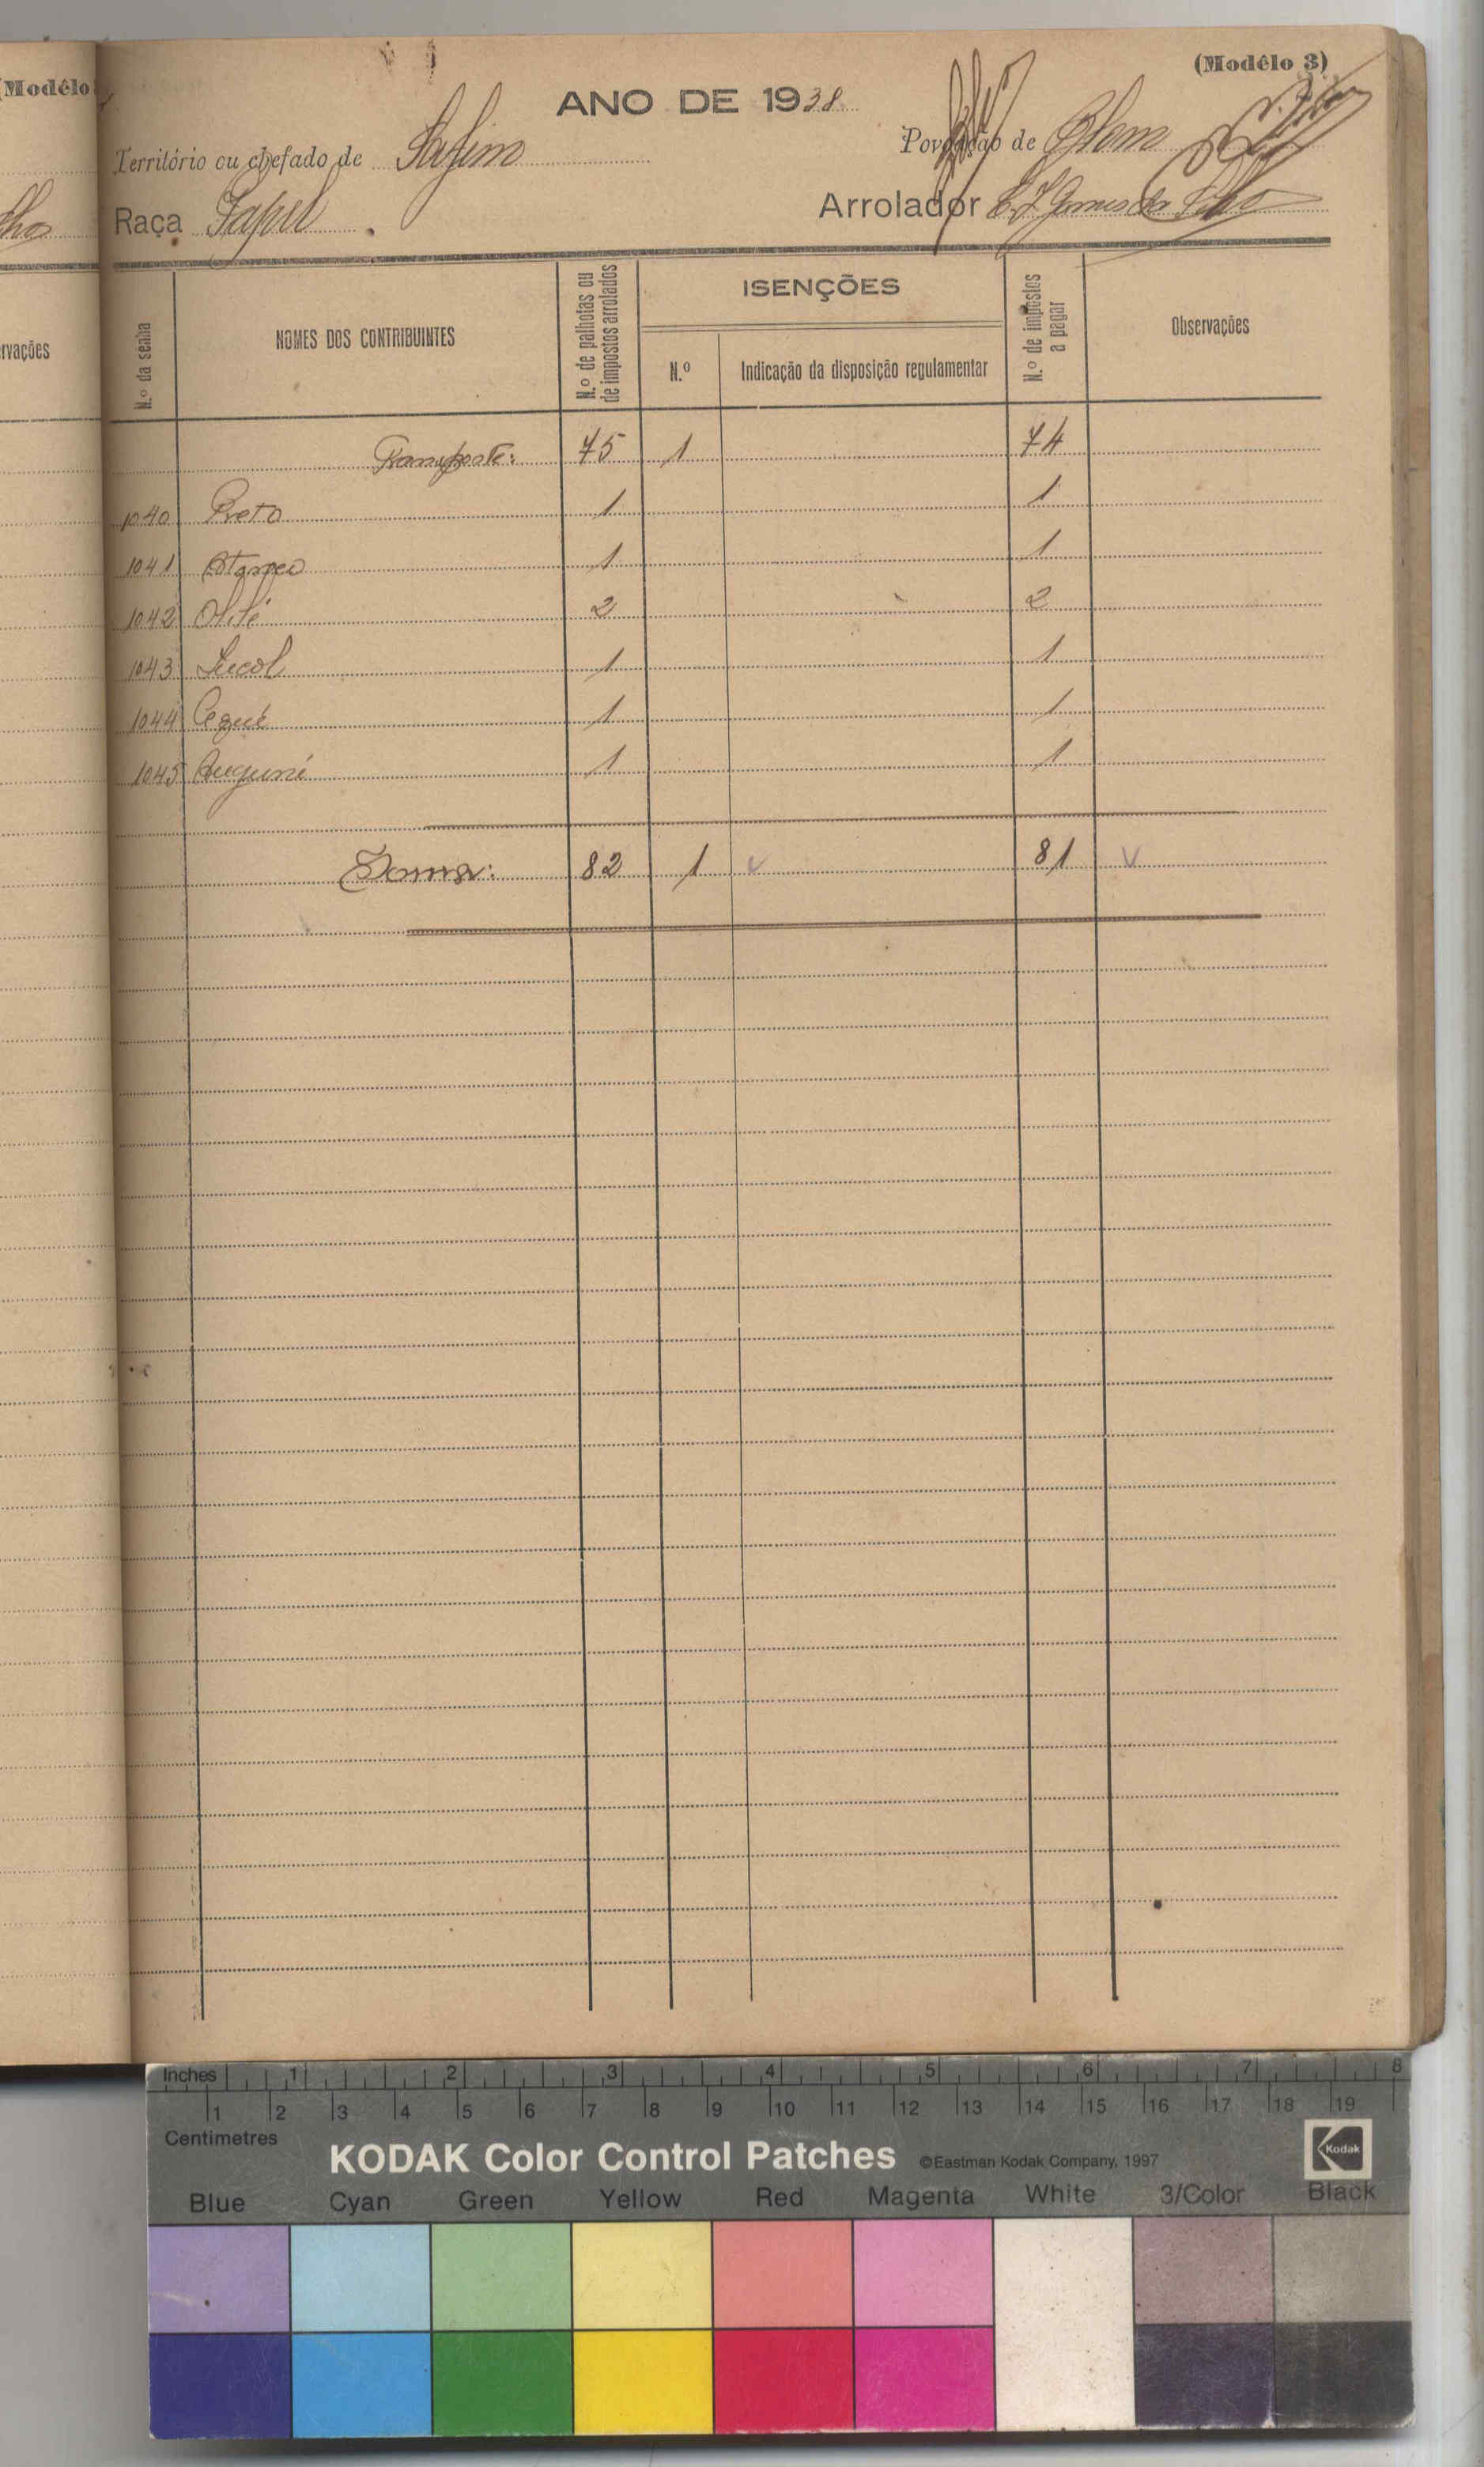 (Modêlo
(Modêlo 3)
ANO DE 1938
Território ou chefado de Safim
Povoação de Blom
Raça Papel
Arrolador
lho
rvações
N.º da senha
NOMES DOS CONTRIBUINTES
N.º de palhotas ou de impostos arrolados
ISENÇÕES
N.º
Indicação da disposição regulamentar
N.º de impostos a pagar
Observações
Transporte: 75 1 74
1040 Preto 1 1
1041 1 1
1042 2 2
1043 1 1
1044 1 1
1045 1 1
Soma: 82 1 81
Inches 1 2 3 4 5 6 7 8
1 2 3 4 5 6 7 8 9 10 11 12 13 14 15 16 17 18 19
Centimetres
KODAK Color Control Patches ©Eastman Kodak Company, 1997 Kodak
Blue Cyan Green Yellow Red Magenta White 3/Color Black